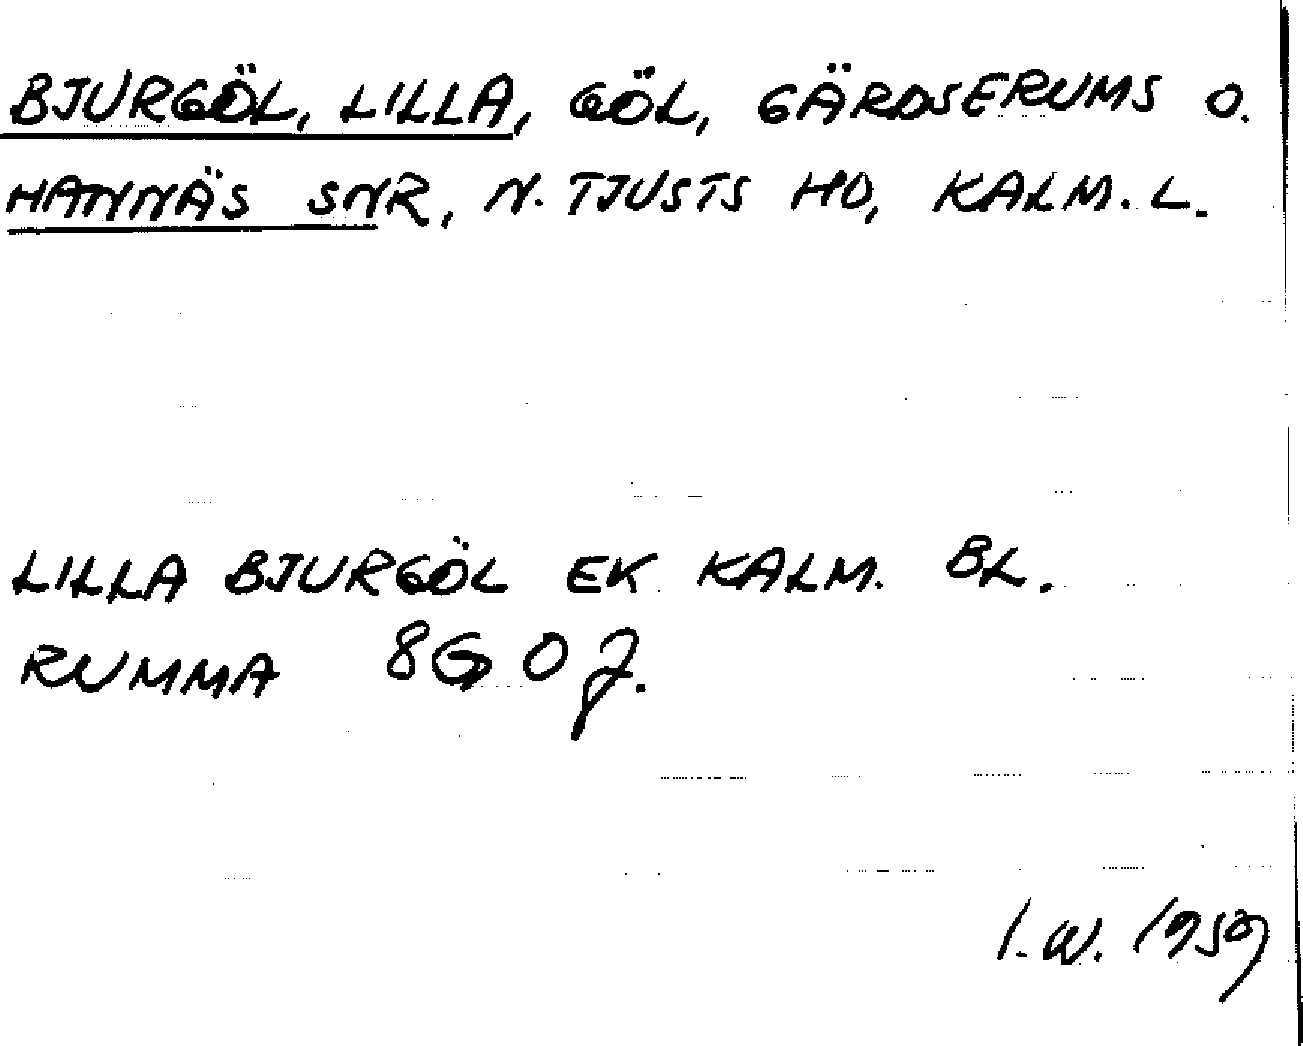 BJURGÖL, LILLA, GÖL, GÄRDSERUMS O.
HANNÄS SNR, N. TJUSTS HD, KALM. L.
LILLA BJURGÖL EK KALM. BL.
RUMMA 8G 0 j.
I.W. 1959